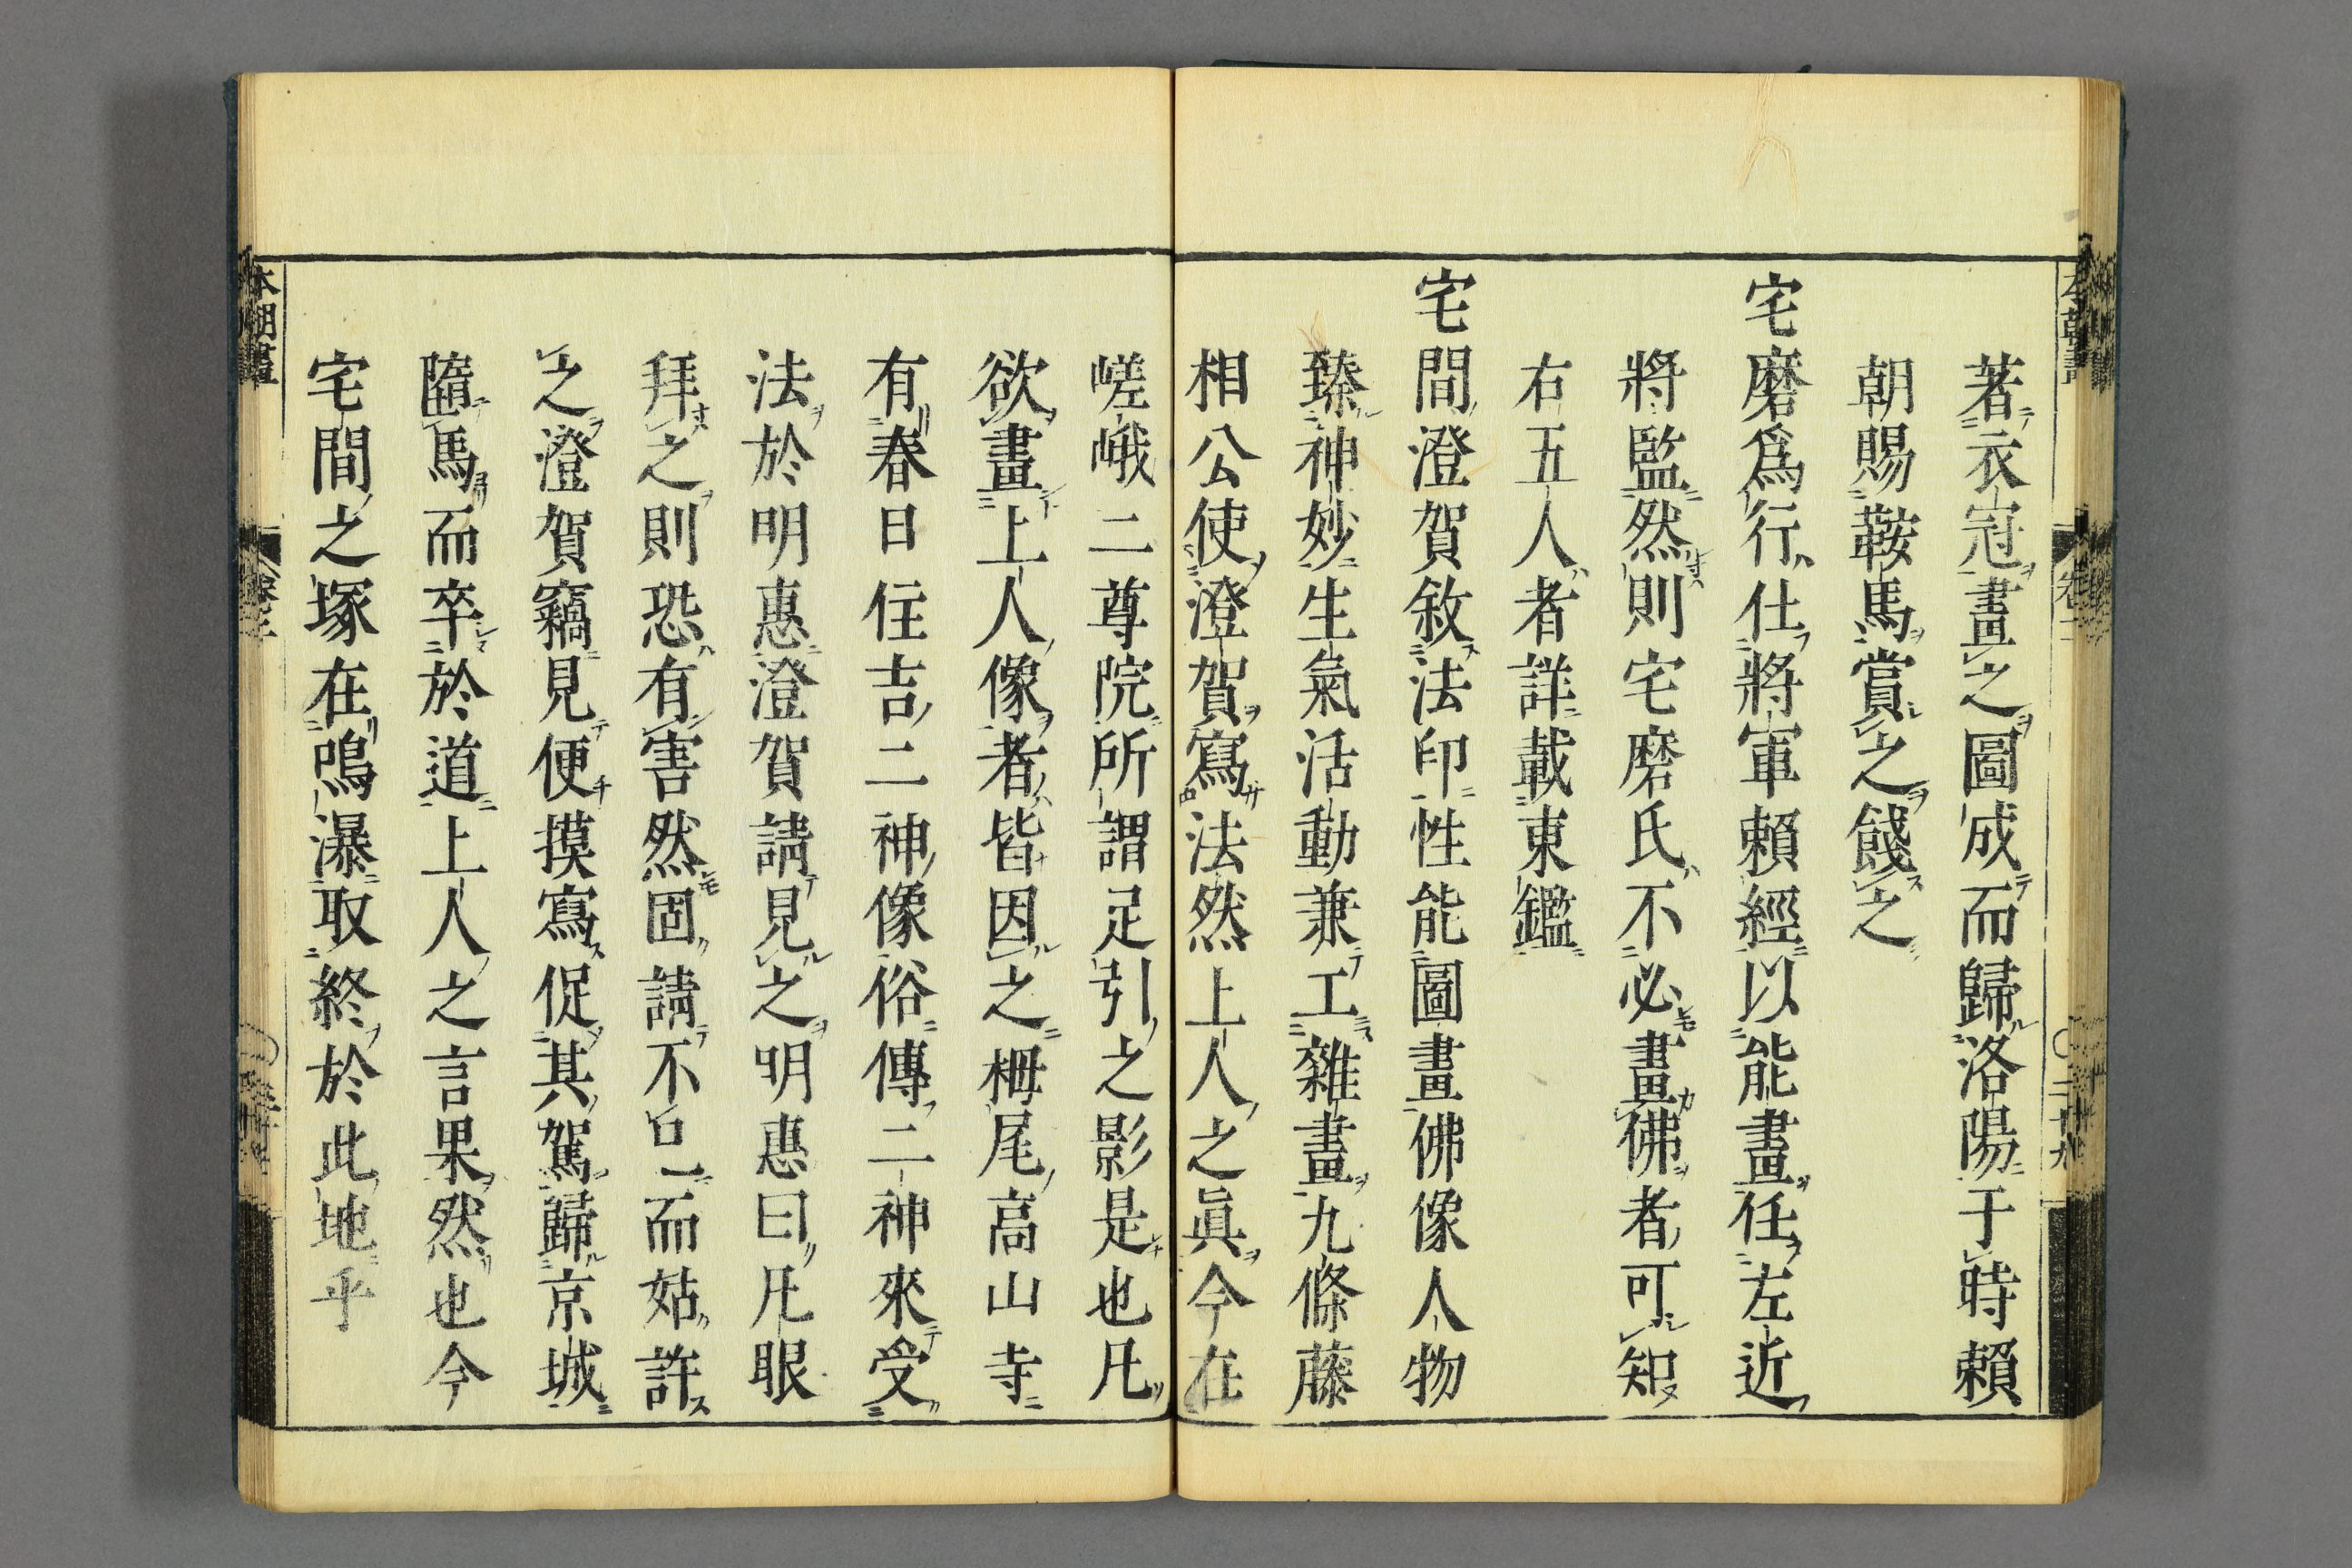 著衣冠畫之圖成而歸洛陽于時賴
朝賜鞍馬賞之餞之
宅磨爲行仕將軍賴經以能畫任左近
將監然則宅磨氏不必畫佛者可知
右五人者詳載東鑑
宅間澄賀敘法印性能圖畫佛像人物
臻神妙生氣活動兼工雜畫九條藤
相公使澄賀寫法然上人之眞今在
嵯峨二尊院所謂足引之影是也凡
欲畫上人像者皆因之栂尾高山寺
有春日住吉二神像俗傳二神來受
法於明惠澄賀請見之明惠曰凡眼
拜之則恐有害然固請不已而姑許
之澄賀竊見便摸寫促其駕歸京城
墮馬而卒於道上人之言果然也今
宅間之塚在鳴瀑取終於此地乎